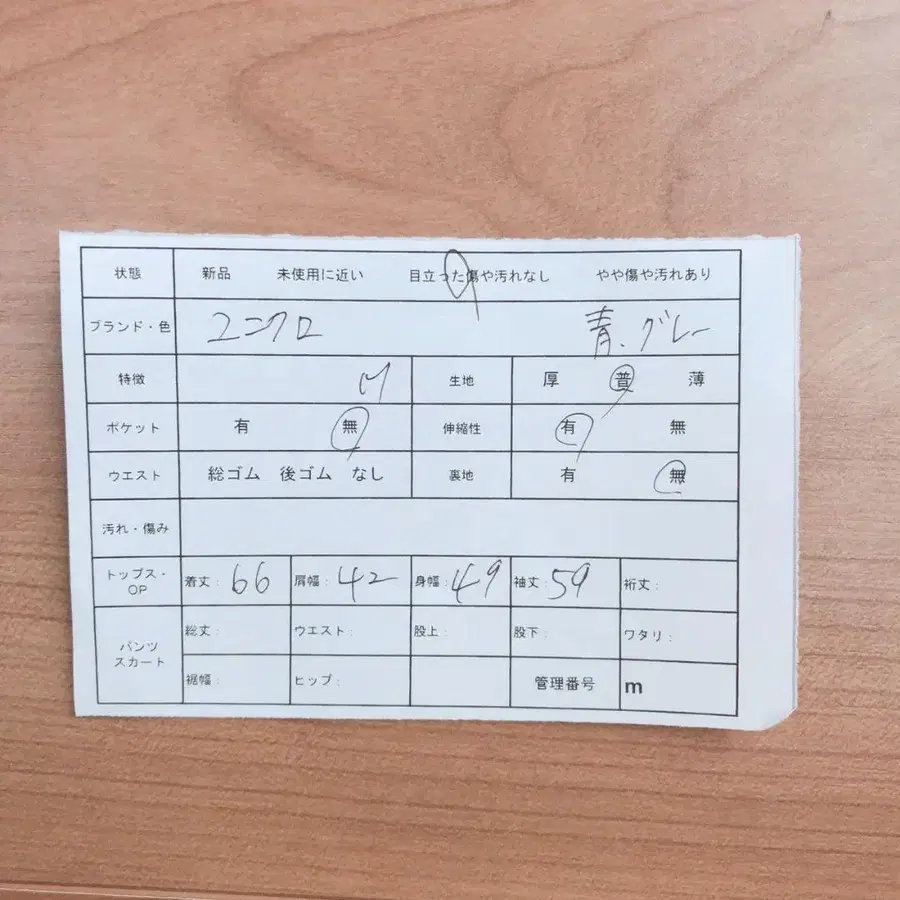 状態 新品 未使用に近い 目立った傷や汚れなし やや傷や汚れあり
ブランド・色 ユニクロ 青、グレー
特徴 生地 厚 普 薄
ポケット 有 無 伸縮性 有 無
ウエスト 総ゴム 後ゴム なし 裏地 有 無
汚れ・傷み
トップス・OP 着丈: 66 肩幅: 42 身幅: 49 袖丈: 59 裄丈:
パンツ スカート 総丈: ウエスト: 股上: 股下: ワタリ:
裾幅: ヒップ: 管理番号 m